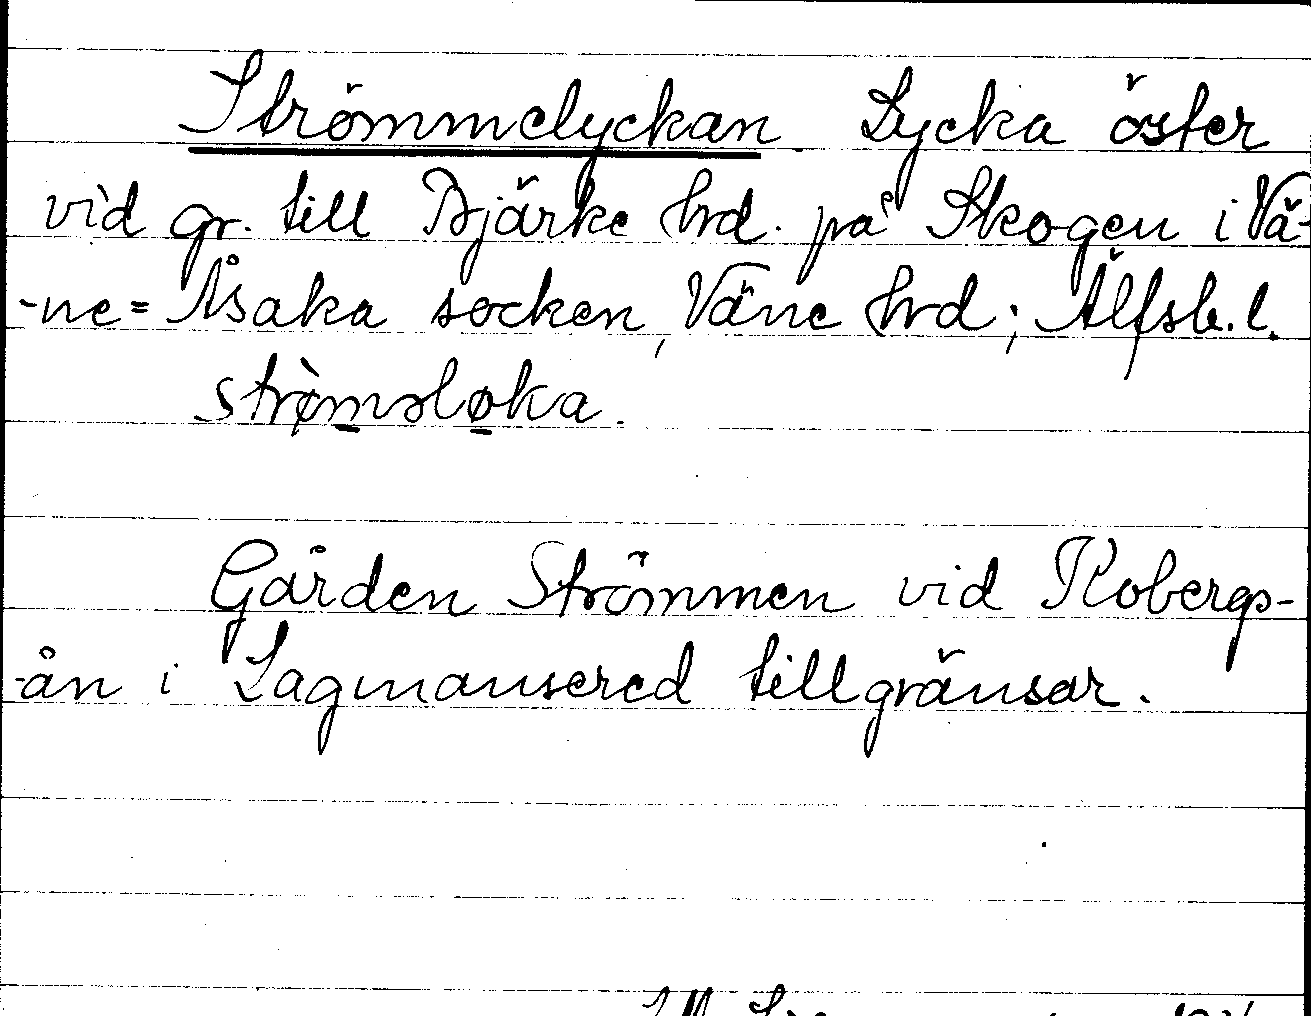 Strömmelyckan. Lycka öster
vid gr. till Bjärke hrd. på Skogen i Vä-
-ne=Åsaka socken, Väne hrd; Älfsb. l.
strømsløka.
Gården Strömmen vid Kobergs-
-ån i Lagmansered tillgränsar.